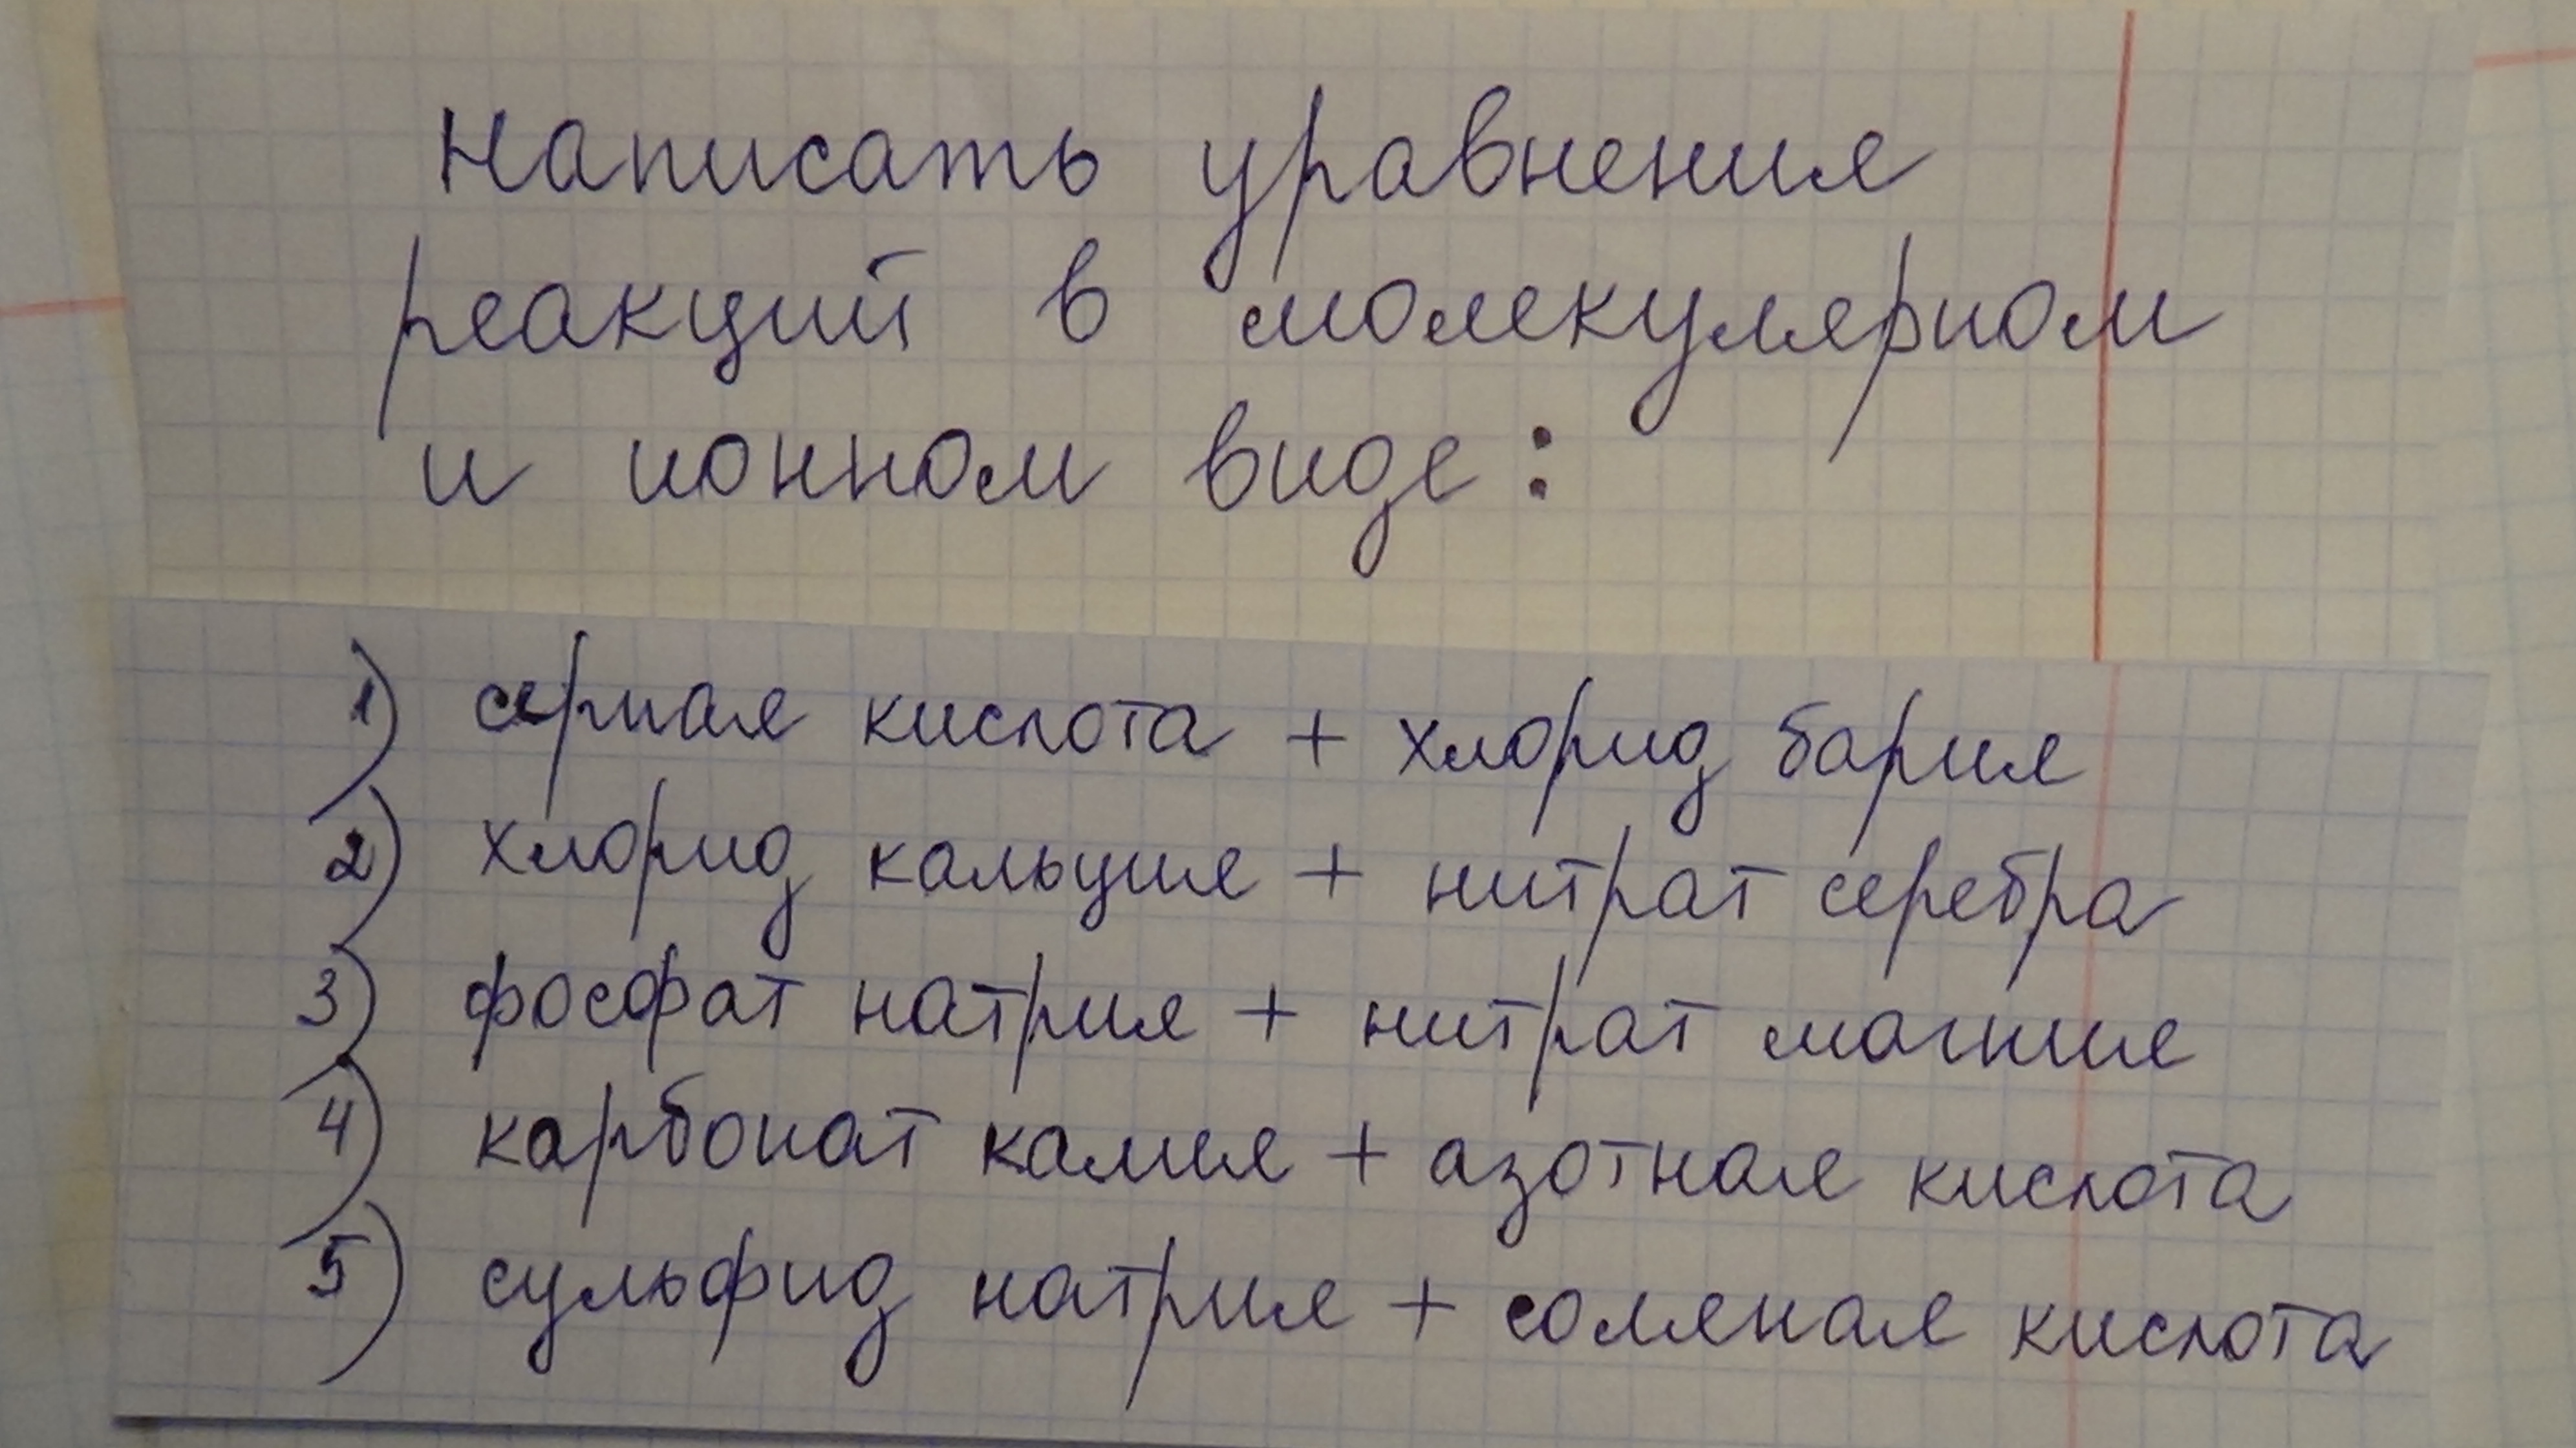 Написать уравнения
реакций в молекулярном
и ионном виде:
1) серная кислота + хлорид бария
2) хлорид кальция + нитрат серебра
3) фосфат натрия + нитрат магния
4) карбонат калия + азотная кислота
5) сульфид натрия + соляная кислота